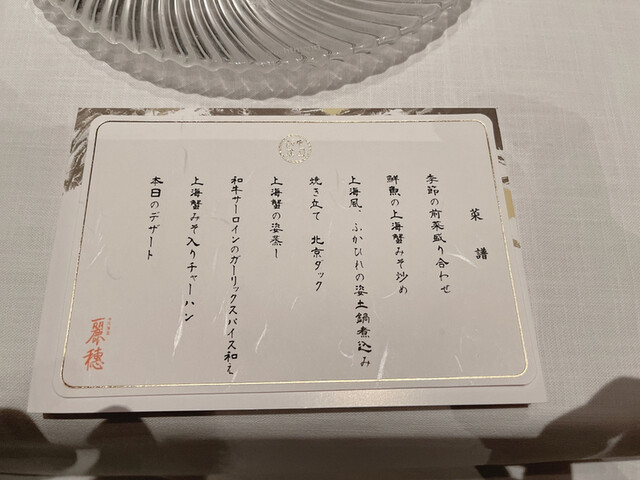 菜譜
季節の前菜盛り合わせ
鮮魚の上海蟹みそ炒め
上海風、ふかひれの姿土鍋煮込み
焼き立て 北京ダック
上海蟹の姿蒸し
和牛サーロインのガーリックスパイス和え
上海蟹みそ入りチャーハン
本日のデザート
麗穂